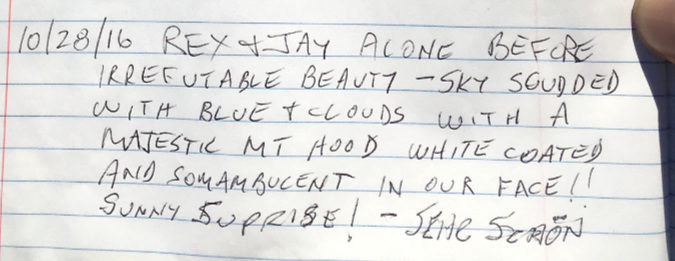 10/28/16 REX & JAY ALONE BEFORE
IRREFUTABLE BEAUTY - SKY SCUDDED
WITH BLUE & CLOUDS WITH A
MAJESTIC MT HOOD WHITE COATED
AND SOMAMBUCENT IN OUR FACE!!
SUNNY SUPRISE! -